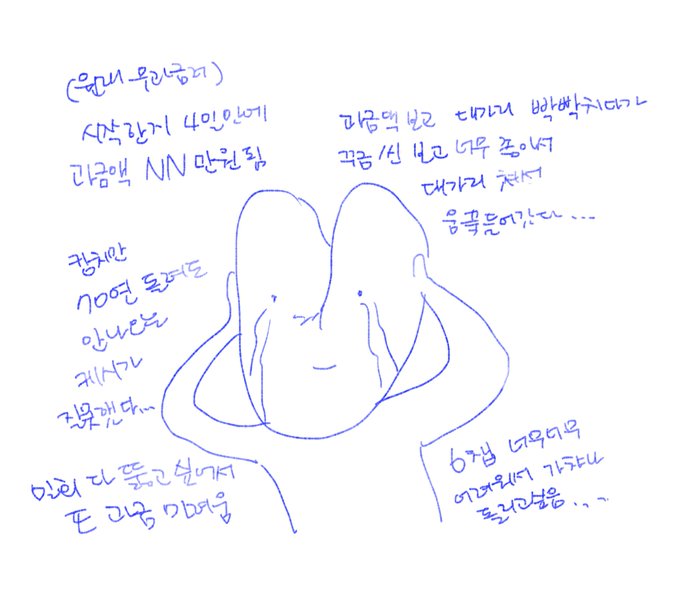 (원래 무과금러)
시작한지 4일안에
과금액 NN만원 됨
과금액 보고 대가리 빡빡치다가
보고 너무 좋아서
대가리
움쭉들어갔다...
참치만
70연 돌려도
안나오는
케시가
잘못했다...
다 뚫고 싶어서
또 과금 마려움
6주년 너무너무
어려워서 가챠나
돌리고싶음...